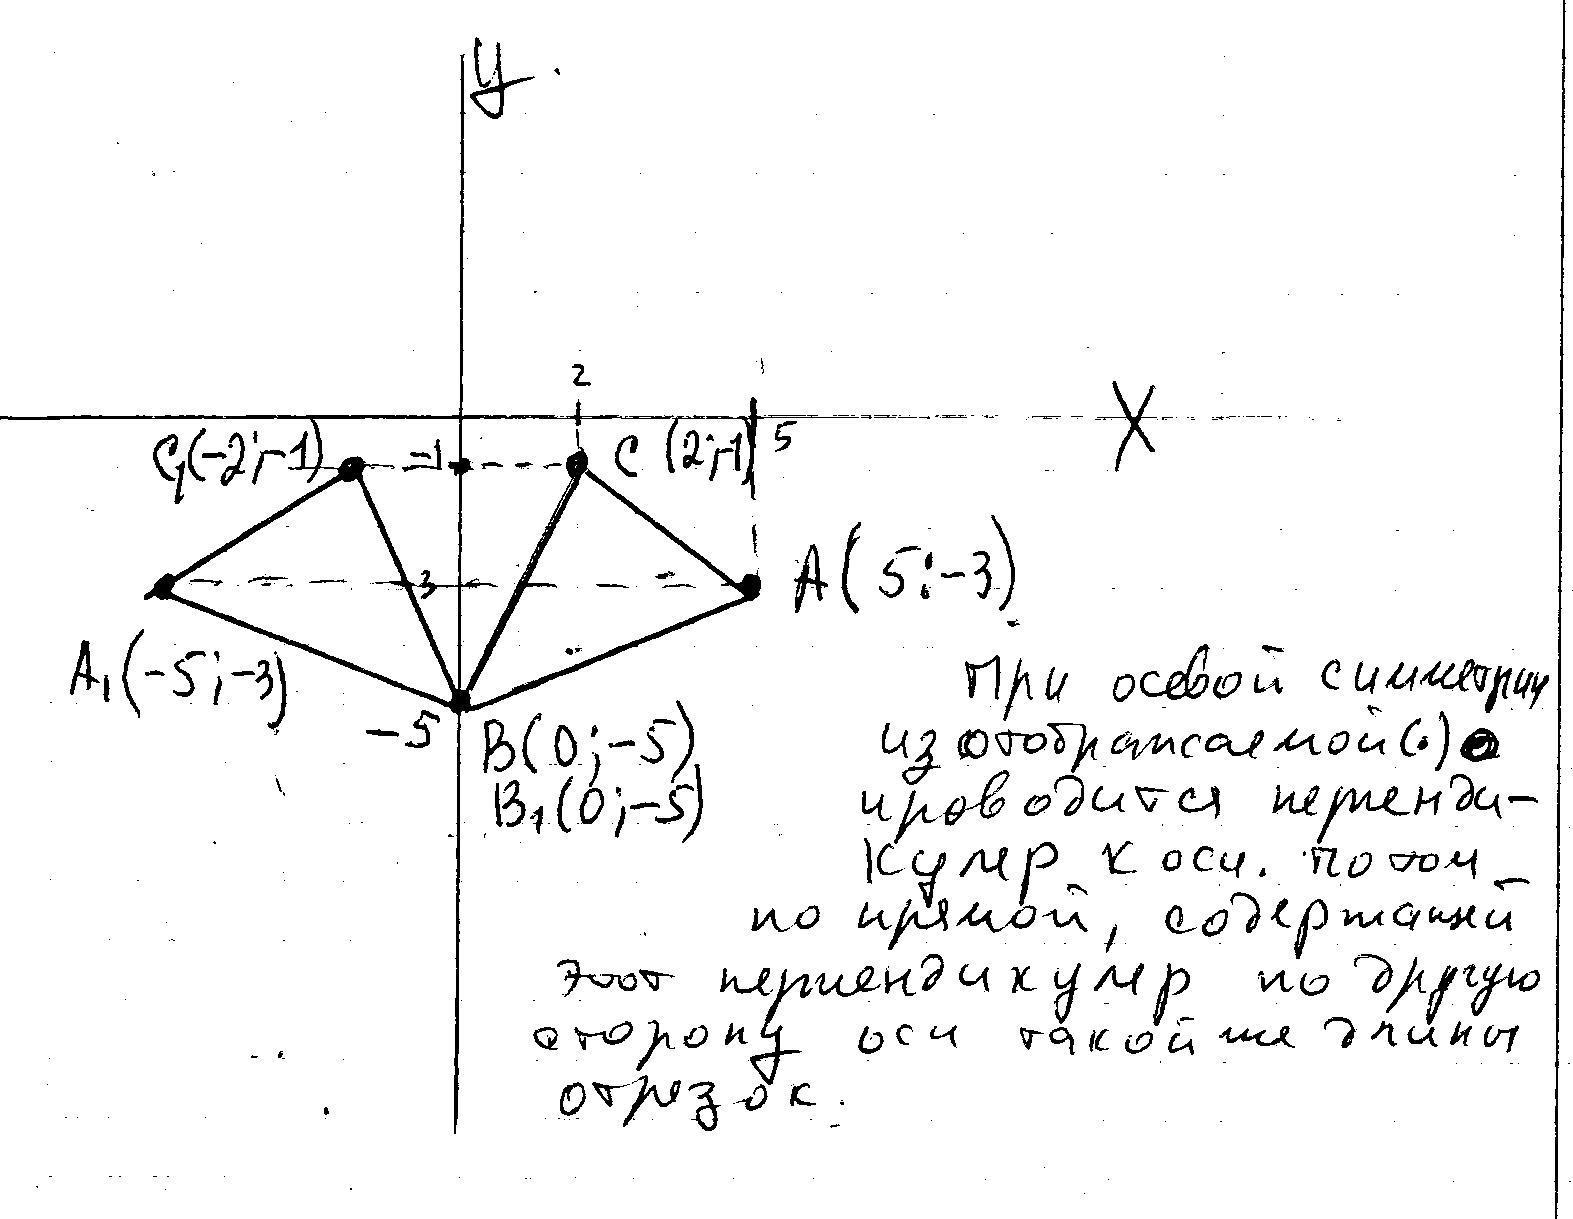 У
2
С₁(-2;-1)
-1
С (2;-1)
5
Х
-3
А(5;-3)
А₁(-5;-3)
-5
В(0;-5)
В₁(0;-5)
При осевой симметрии
из отображаемой(.)
проводится перпенди-
куляр к оси. Потом
по прямой, содержащей
этот перпендикуляр по другую
сторону оси такой же длины
отрезок.